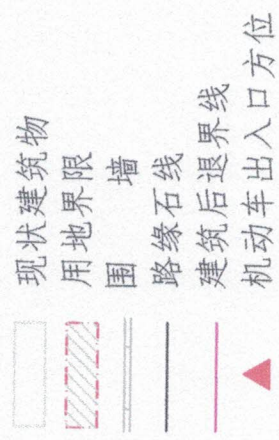 现状建筑物
用地界限
围 墙
路缘石线
建筑后退界线
机动车出入口方位